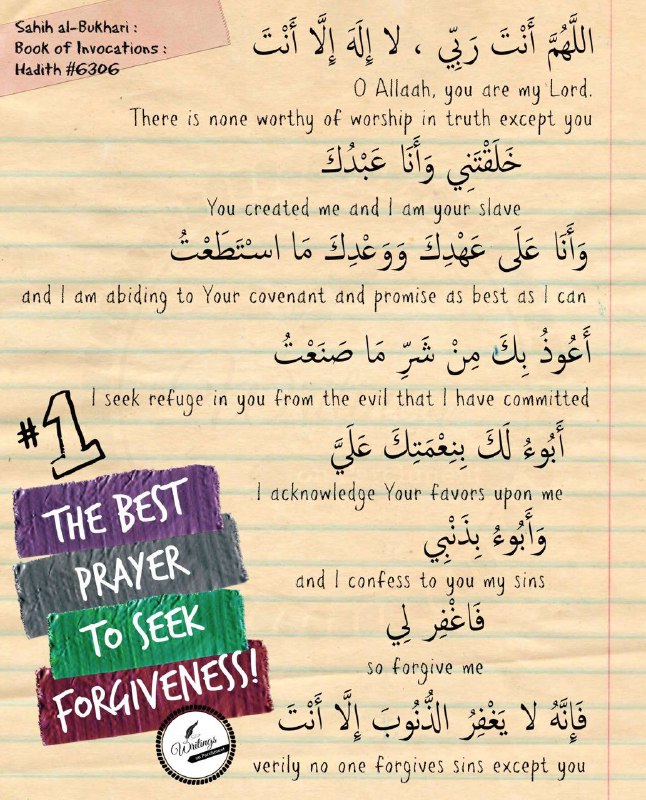 Sahih al-Bukhari :
Book of Invocations :
Hadith #6306
اللَّهُمَّ أَنْتَ رَبِّي ، لا إِلَهَ إِلَّا أَنْتَ
O Allaah, you are my Lord.
There is none worthy of worship in truth except you
خَلَقْتَنِي وَأَنَا عَبْدُكَ
You created me and I am your slave
وَأَنَا عَلَى عَهْدِكَ وَوَعْدِكَ مَا اسْتَطَعْتُ
and I am abiding to Your covenant and promise as best as I can
أَعُوذُ بِكَ مِنْ شَرِّ مَا صَنَعْتُ
I seek refuge in you from the evil that I have committed
أَبُوءُ لَكَ بِنِعْمَتِكَ عَلَيَّ
I acknowledge Your favors upon me
وَأَبُوءُ بِذَنْبِي
and I confess to you my sins
فَاغْفِر لِي
so forgive me
فَإِنَّهُ لا يَغْفِرُ الذُّنُوبَ إِلَّا أَنْتَ
verily no one forgives sins except you
#1
THE BEST
PRAYER
TO SEEK
FORGIVENESS!
Writings
on Parchment